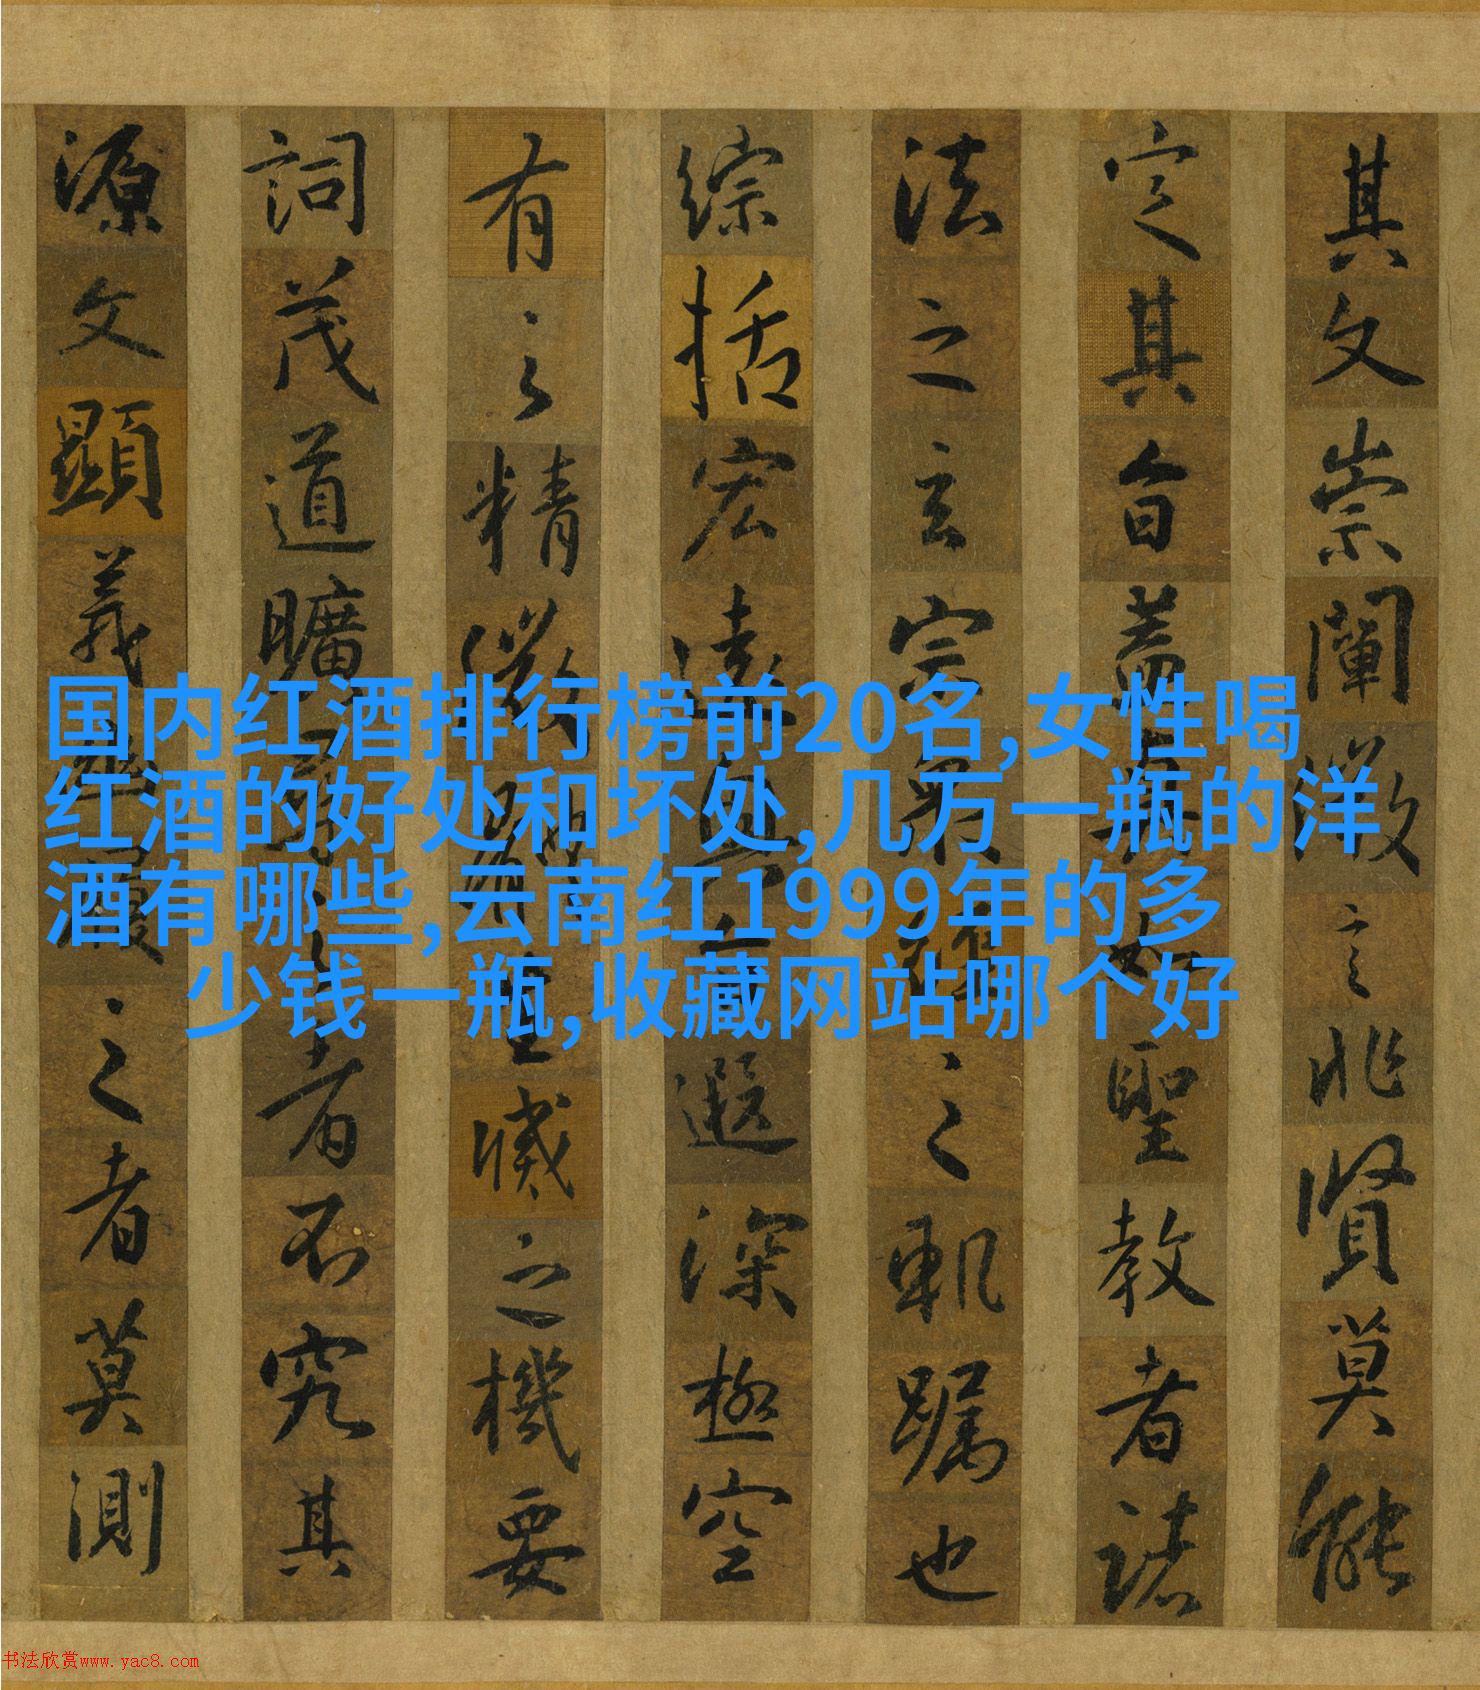 其文崇闡微言非賢莫能
定其旨蓋真如聖教者諸
法之玄宗眾經之軌躅也
綜括宏遠奧旨遐深極空
有之精微體生滅之機要
詞茂道曠尋之者不究其
源文顯義幽履之者莫測
国内红酒排行榜前20名,女性喝
红酒的好处和坏处,几万一瓶的洋
酒有哪些,云南红1999年的多
少钱一瓶,收藏网站哪个好
书法欣赏www.yac8.com